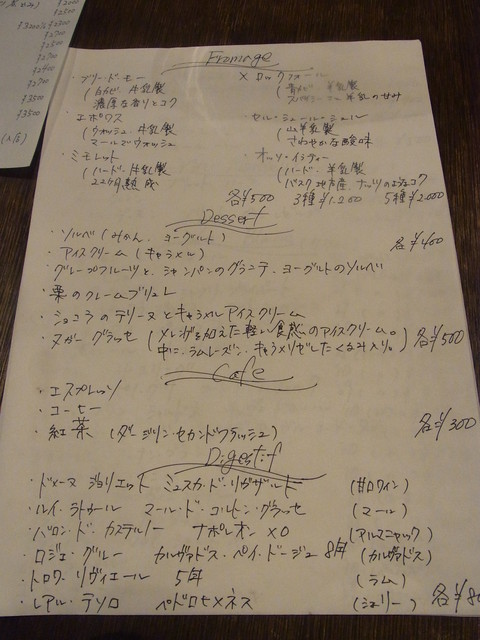 ¥2700
¥2500
¥2700
¥2400
¥2700
¥3500
¥3500
Fromage
・ブリ・ド・モー
(白カビ 牛乳製
濃厚な香りとコク
× ロックフォール
(青カビ 羊乳製
羊乳の甘み
・エポワス
(ウォッシュ 牛乳製
マールでウォッシュ
・セル・シュール・シェル
(山羊乳製
さわやかな酸味
・ミモレット
(ハード 牛乳製
22ヶ月熟成
・オッソ・イラティー
(ハード 羊乳製
バスク地方産、ナッツのようなコク
各¥500 3種¥1.200 5種¥2.000
Dessert
・ソルベ(みかん、ヨーグルト)
・アイスクリーム(キャラメル) 各¥400
・グレープフルーツと、シャンパンのグラニテ、ヨーグルトのソルベ
・栗のクレームブリュレ
・ショコラのテリーヌとキャラメルアイスクリーム
・ヌガー グラッセ (メレンゲを加えた軽い食感のアイスクリーム。
中に、ラムレーズン、キャラメリゼしたくるみ入り。) 各¥500
Cafe
・エスプレッソ
・コーヒー
・紅茶 (ダージリン・セカンドフラッシュ) 各¥300
Digestif
・ドメーヌ ジョリエット ミュスカ・ド・リヴザルト (甘口ワイン)
・ルイ・ラトゥール マール・ド・コルトン・グラッセ (マール)
・バロン・ド・カステルノー ナポレオン XO (アルマニャック)
・ロジェ・グルー カルヴァドス・ペイ・ドージュ 8年 (カルヴァドス)
・トロワ・リヴィエール 5年 (ラム)
・レアル・テソロ ペドロヒメネス (シェリー) 各¥80